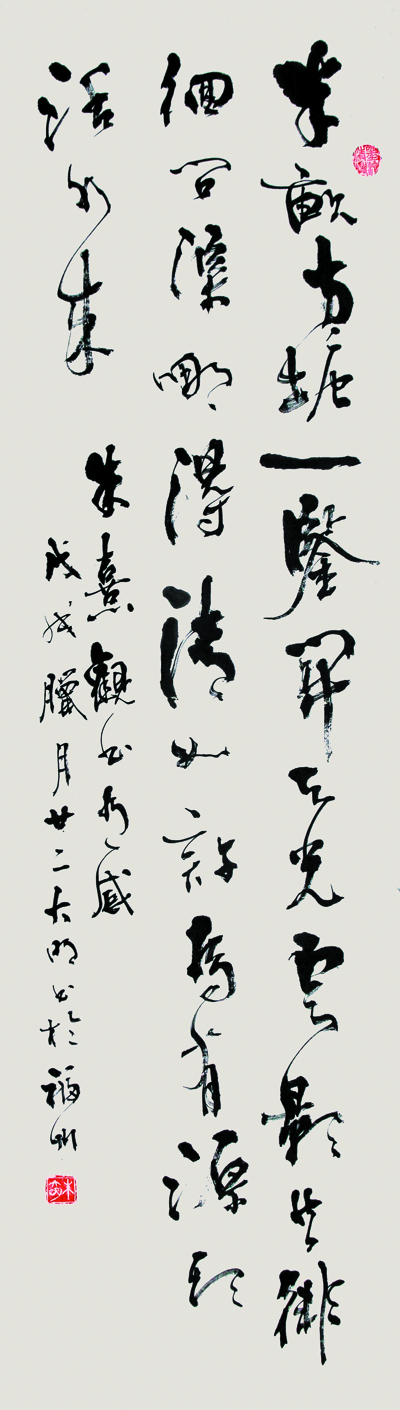 半畝方塘一鑒開天光雲影共徘
徊問渠哪得清如許為有源頭
活水來
朱熹觀書有感
戊戌臘月廿二大明書於福州